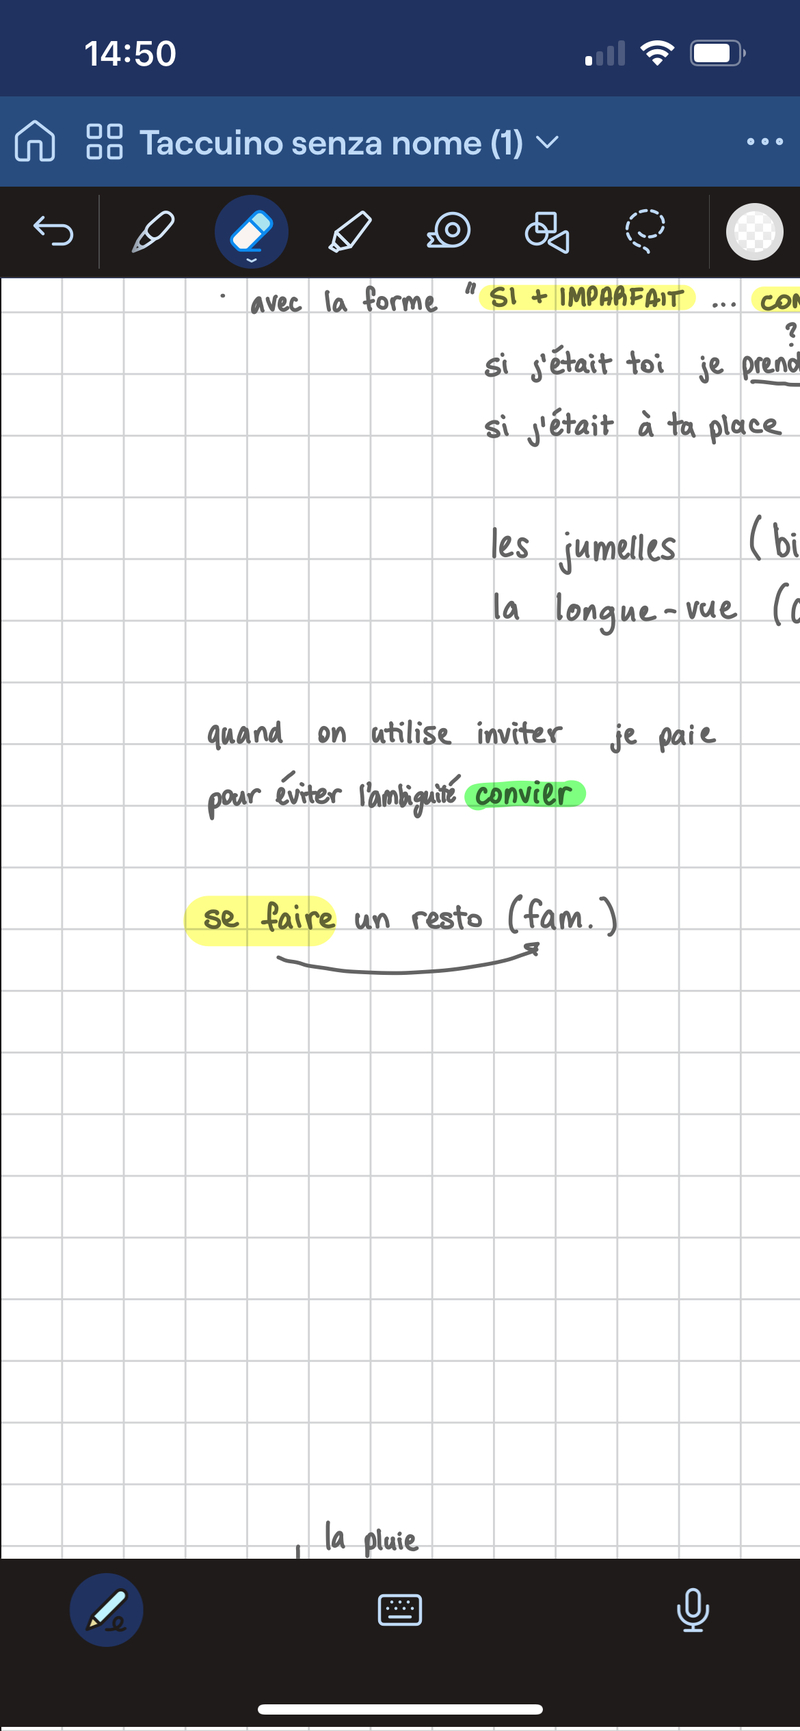 14:50
Taccuino senza nome (1)
· avec la forme " SI + IMPARFAIT ... CON
?
si j'était toi je prend
si j'était à ta place
les jumelles (bi
la longue-vue (
quand on utilise inviter je paie
pour éviter l'ambiguité convier
se faire un resto (fam.)
la pluie